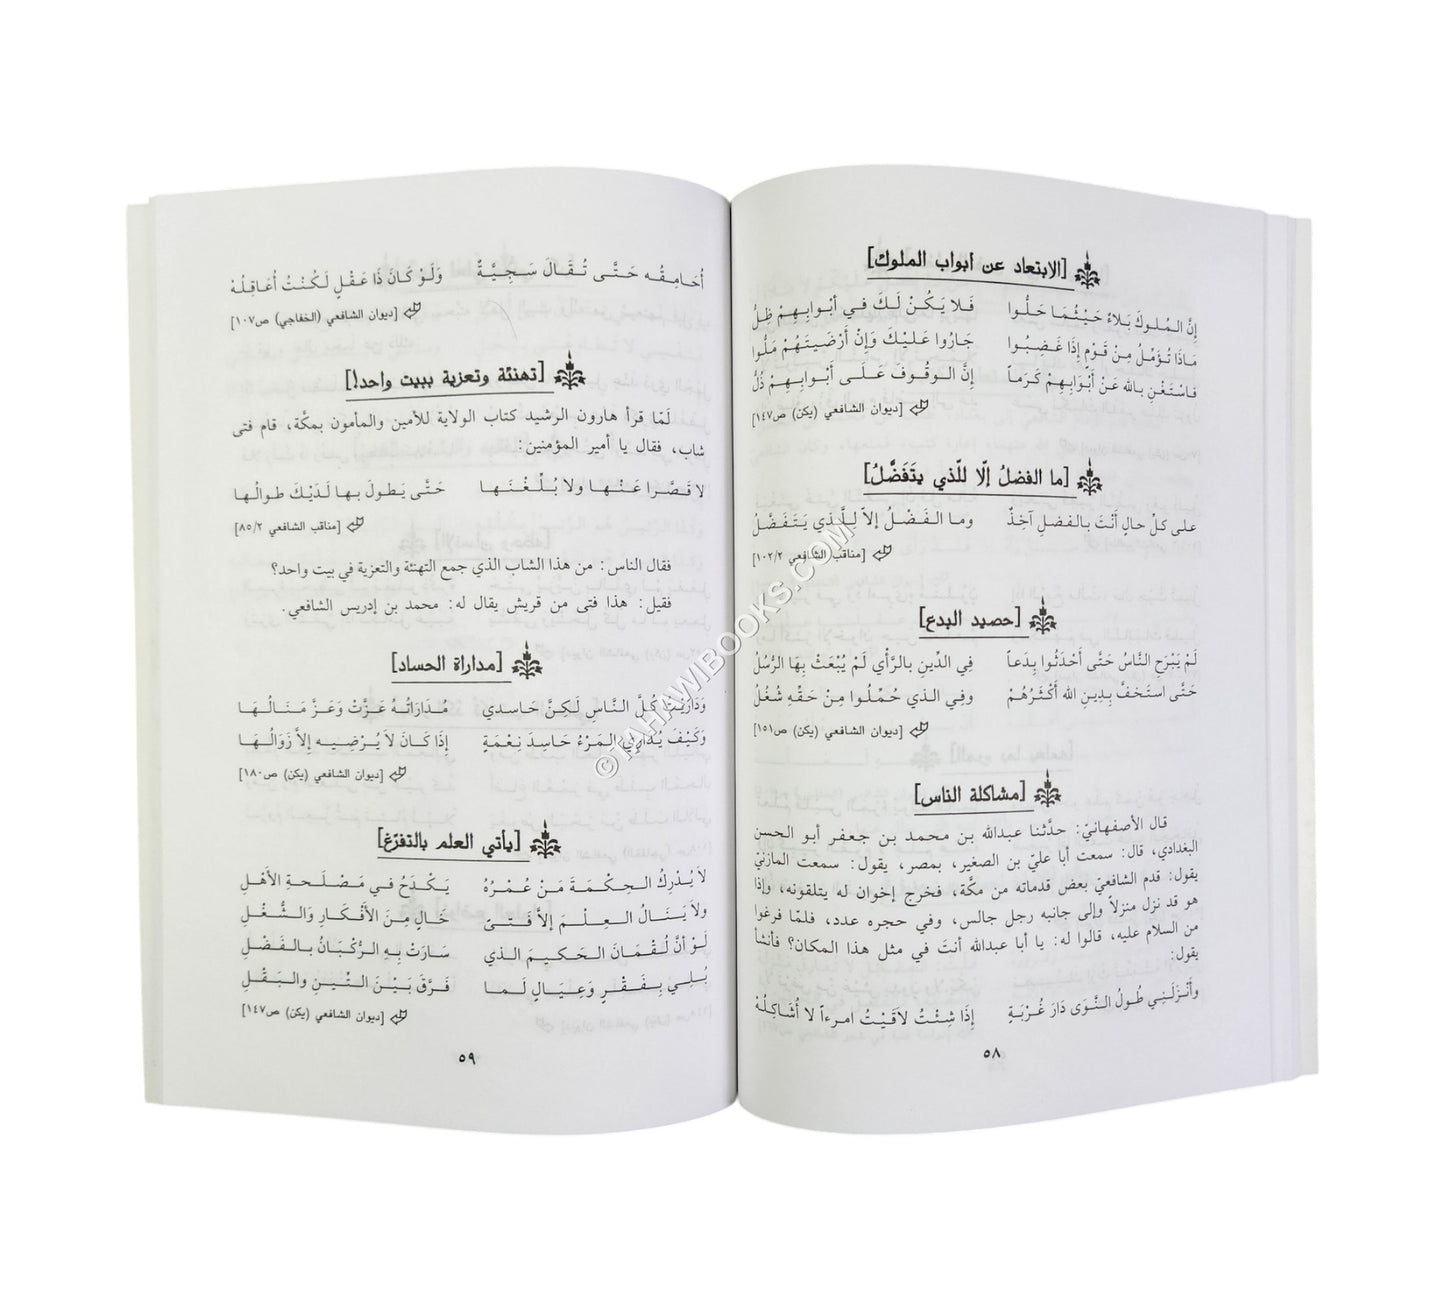 [الابتعاد عن أبواب الملوك]
إنَّ المُلوكَ بَلاءٌ حَيْثُمَا حَلُّوا فَلا يَكُنْ لَكَ في أبْوابِهِمْ ظِلُّ
مَاذَا تُؤَمِّلُ مِنْ قَوْمٍ إذَا غَضِبُوا جَارُوا عَلَيْكَ وَإنْ أرْضَيتَهُمْ مَلُّوا
فَاسْتَغْنِ بالله عَنْ أَبْوَابِهِمْ كَرَماً إنَّ الوقُوفَ عَلَى أبْوابِهِمْ ذُلُّ
[ديوان الشافعي (يكن) ص١٤٧]
[ما الفضلُ إلّا للّذي يتَفَضَّلُ]
على كلِّ حالٍ أنْتَ بالفضلِ آخِذٌ وما الفَضْلُ إلاَّ لِلَّذي يَتَفَضَّلُ
[مناقب الشافعي ١٠٢/٢]
[حصيد البدع]
لَمْ يَبْرَحِ النَّاسُ حَتَّى أَحْدَثُوا بِدَعاً فِي الدِّينِ بالرَّأْي لَمْ يُبْعَثْ بِهَا الرُّسُلُ
حَتَّى استَخَفَّ بِدِينِ الله أَكْثَرُهُمْ وفِي الذي حُمِّلُوا مِنْ حَقِّهِ شُغُلُ
[ديوان الشافعي (يكن) ص١٥١]
[مشاكلة الناس]
قال الأصفهانيّ: حدَّثنا عبدالله بن محمد بن جعفر أبو الحسن
البغدادي، قال: سمعت أبا عليّ بن الصغير، بمصر، يقول: سمعت المازنيّ
يقول: قدم الشافعيّ بعض قدماته من مكّة، فخرج إخوان له يتلقونه، وإذا
هو قد نزل منزلاً وإلى جانبه رجل جالس، وفي حجره عدد، فلمّا فرغوا
من السلام عليه، قالوا له: يا أبا عبدالله أنتَ في مثل هذا المكان؟ فأنشأ
يقول:
وأنْزَلَنِي طُولُ النَّوَى دَارَ غُرْبَةٍ إذَا شِئْتُ لاَقَيْتُ امرءاً لا أُشَاكِلُهُ
٥٨
أُحَامِقُه حَتَّى تُقَالَ سَجِيَّةٌ وَلَوْ كَانَ ذَا عَقْلٍ لَكُنْتُ أُعَاقِلُهُ
[ديوان الشافعي (الخفاجي) ص١٠٧]
[تهنئة وتعزية ببيت واحد!]
لَمّا قرأ هارون الرشيد كتاب الولاية للأمين والمأمون بمكّة، قام فتى
شاب، فقال يا أمير المؤمنين:
لا قَصَّرا عَنْها ولا بُلِّغْنَها حَتَّى يَطولَ بها لَدَيْكَ طوالُها
[مناقب الشافعي ٨٥/٢]
فقال الناس: من هذا الشاب الذي جمع التهنئة والتعزية في بيت واحد؟
فقيل: هذا فتى من قريش يقال له: محمد بن إدريس الشافعي.
[مداراة الحساد]
وَدَارَيْتُ كُلَّ النَّاسِ لَكِنَّ حَاسدي مُدَارَاتُهُ عَزَّتْ وَعَزَّ مَنَالُهَا
وَكَيْفَ يُدَارِي المَرْءُ حَاسِدَ نِعْمَةٍ إذَا كَانَ لاَ يُرْضِيهِ إلاَّ زَوَالُهَا
[ديوان الشافعي (يكن) ص١٨٠]
[يأتي العلم بالتفرّغ]
لاَ يُدْرِكُ الحِكْمَةَ مَنْ عُمْرُهُ يَكْدَحُ في مَصْلَحةِ الأَهْلِ
ولاَ يَنَالُ العِلْمَ إلاَّ فَتًى خَالٍ مِنَ الأَفْكَارِ وَالشُّغْلِ
لَوْ أنَّ لُقْمَانَ الحَكيمَ الذي سَارَتْ بِهِ الرُّكْبَانُ بالفَضْلِ
بُلِي بِفَقْرٍ وَعِيَالٍ لَما فَرَّقَ بَيْنَ التِّبنِ والبَقْلِ
[ديوان الشافعي (يكن) ص١٤٧]
٥٩
©TAHAWIBOOKS.COM